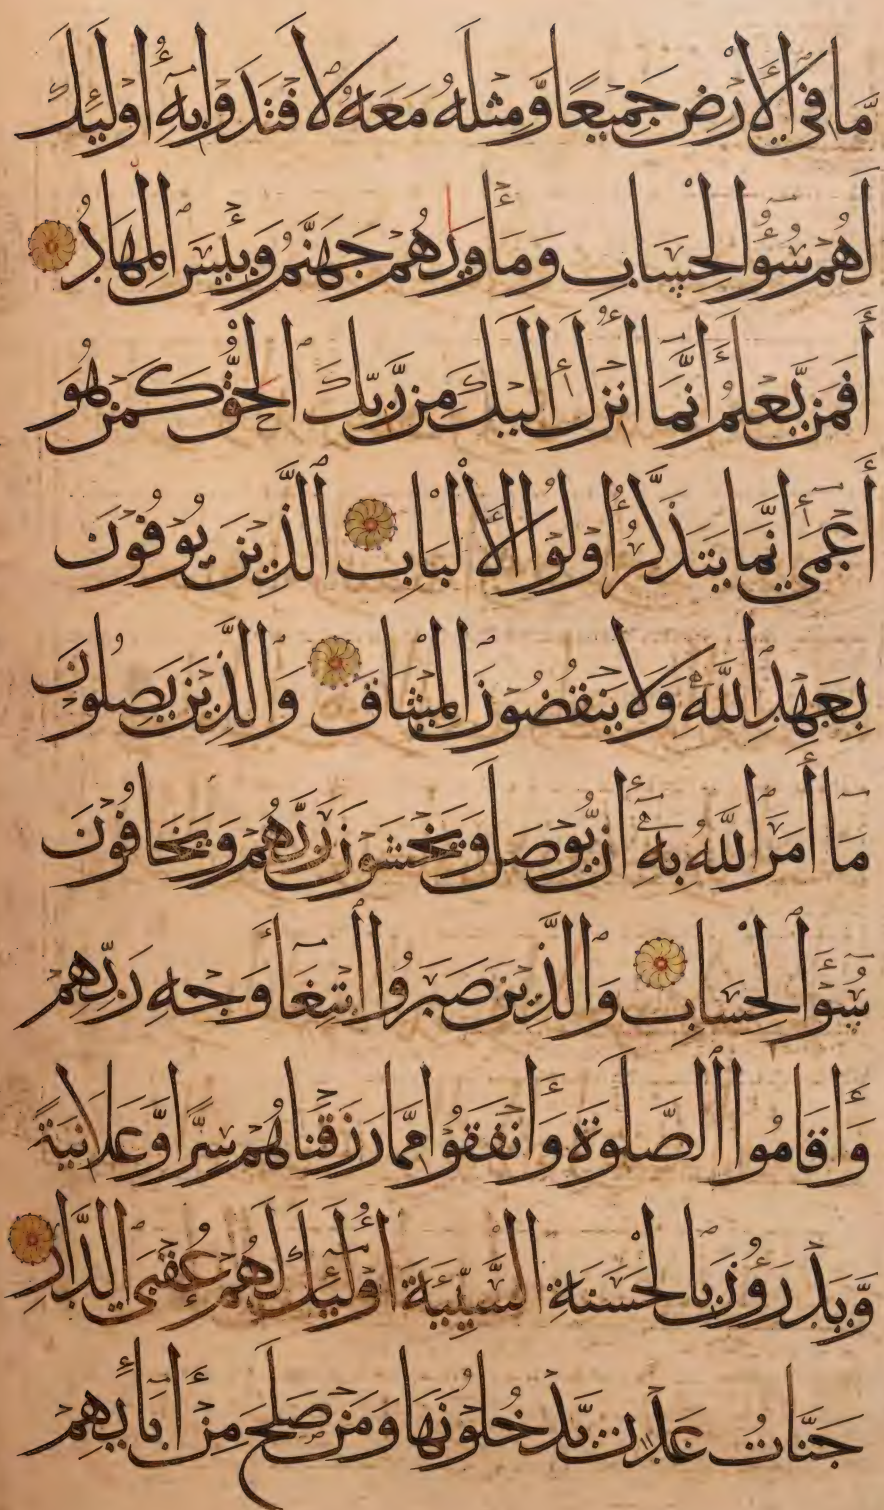 مَّا فِي الْأَرْضِ جَمِيعًا وَّمِثْلَهُ مَعَهُ لَافْتَدَوْا بِهِ أُولَٰئِكَ
لَهُمْ سُوءُ الْحِسَابِ وَمَأْوَىٰهُمْ جَهَنَّمُ وَبِئْسَ الْمِهَادُ
أَفَمَن يَّعْلَمُ أَنَّمَا أُنزِلَ إِلَيْكَ مِن رَّبِّكَ الْحَقُّ كَمَنْ هُوَ
أَعْمَىٰ إِنَّمَا يَتَذَكَّرُ أُولُوا الْأَلْبَابِ الَّذِينَ يُوفُونَ
بِعَهْدِ اللَّهِ وَلَا يَنقُضُونَ الْمِيثَاقَ وَالَّذِينَ يَصِلُونَ
مَا أَمَرَ اللَّهُ بِهِ أَن يُّوصَلَ وَيَخْشَوْنَ رَبَّهُمْ وَيَخَافُونَ
سُوءَ الْحِسَابِ وَالَّذِينَ صَبَرُوا ابْتِغَاءَ وَجْهِ رَبِّهِمْ
وَأَقَامُوا الصَّلَوٰةَ وَأَنفَقُوا مِمَّا رَزَقْنَاهُمْ سِرًّا وَّعَلَانِيَةً
وَّيَدْرَءُونَ بِالْحَسَنَةِ السَّيِّئَةَ أُولَٰئِكَ لَهُمْ عُقْبَى الدَّارِ
جَنَّاتُ عَدْنٍ يَّدْخُلُونَهَا وَمَن صَلَحَ مِنْ آبَائِهِمْ